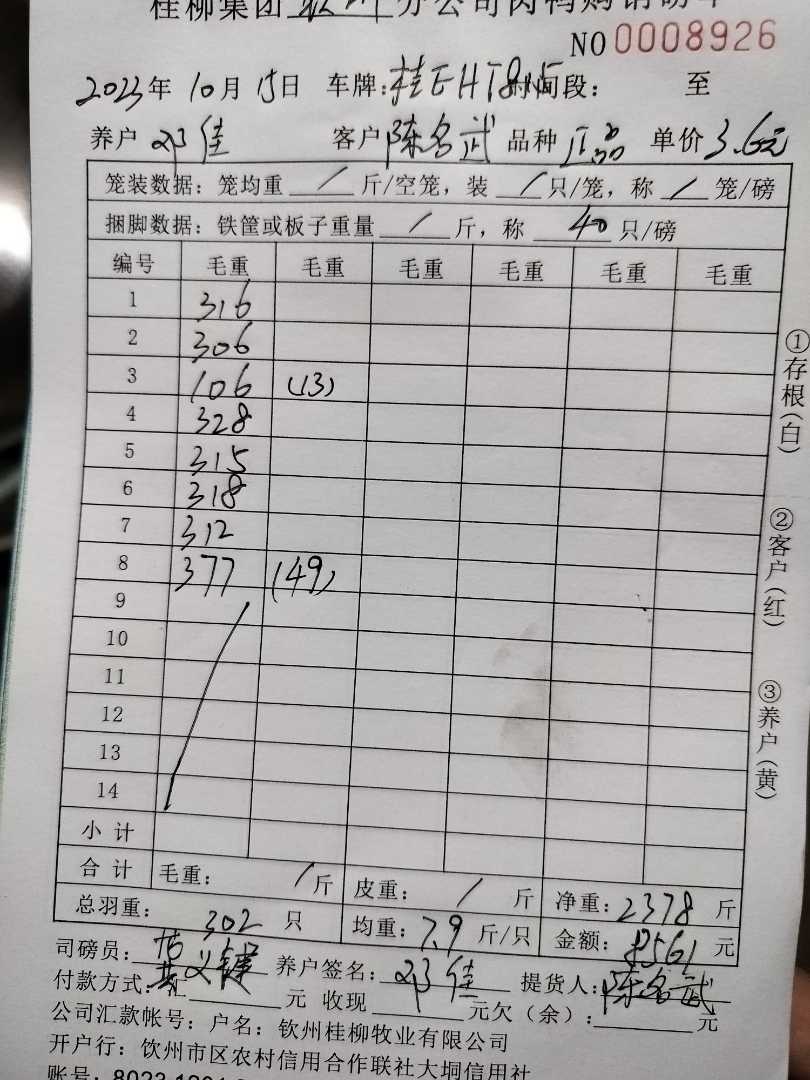 桂柳集团 钦州 分公司肉鸭购销磅单
NO 0008926
2023年 10月 15日 车牌:桂EHT815 时间段: 至
养户 邓佳 客户 陈名武 品种 正品 单价 3.6元
笼装数据: 笼均重 / 斤/空笼, 装 / 只/笼, 称 / 笼/磅
捆脚数据: 铁筐或板子重量 / 斤, 称 40 只/磅
编号 毛重 毛重 毛重 毛重 毛重 毛重
1 316
2 306
3 106 (13)
4 328
5 315
6 318
7 312
8 377 (49)
9
10
11
12
13
14
小计
合计 毛重: / 斤 皮重: / 斤 净重: 2378 斤
总羽重: 302 只 均重: 7.9 斤/只 金额: 8561 元
司磅员: 养户签名: 邓佳 提货人: 陈名武
付款方式: 汇 元 收现 元欠(余): 元
公司汇款帐号: 户名: 钦州桂柳牧业有限公司
开户行: 钦州市区农村信用合作联社大垌信用社
账号: 8023 1201
①存根(白)
②客户(红)
③养户(黄)